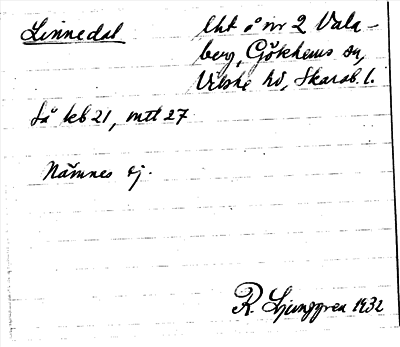 Linnedal
lht å nr 2 Vala-
berg, Gökhems sn,
Vilske hd, Skarab. l.
Så kb 21, mtl 27
Nämnes ej.
R. Ljunggren 1932